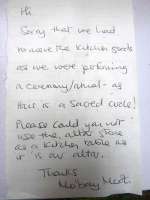 Hi.
Sorry that we had
to move the kitchen goods
as we were performing
a ceremony/ritual - as
this is a sacred circle!
Please could you not
use the altar stone
as a kitchen table as
it is our altar.
Thanks